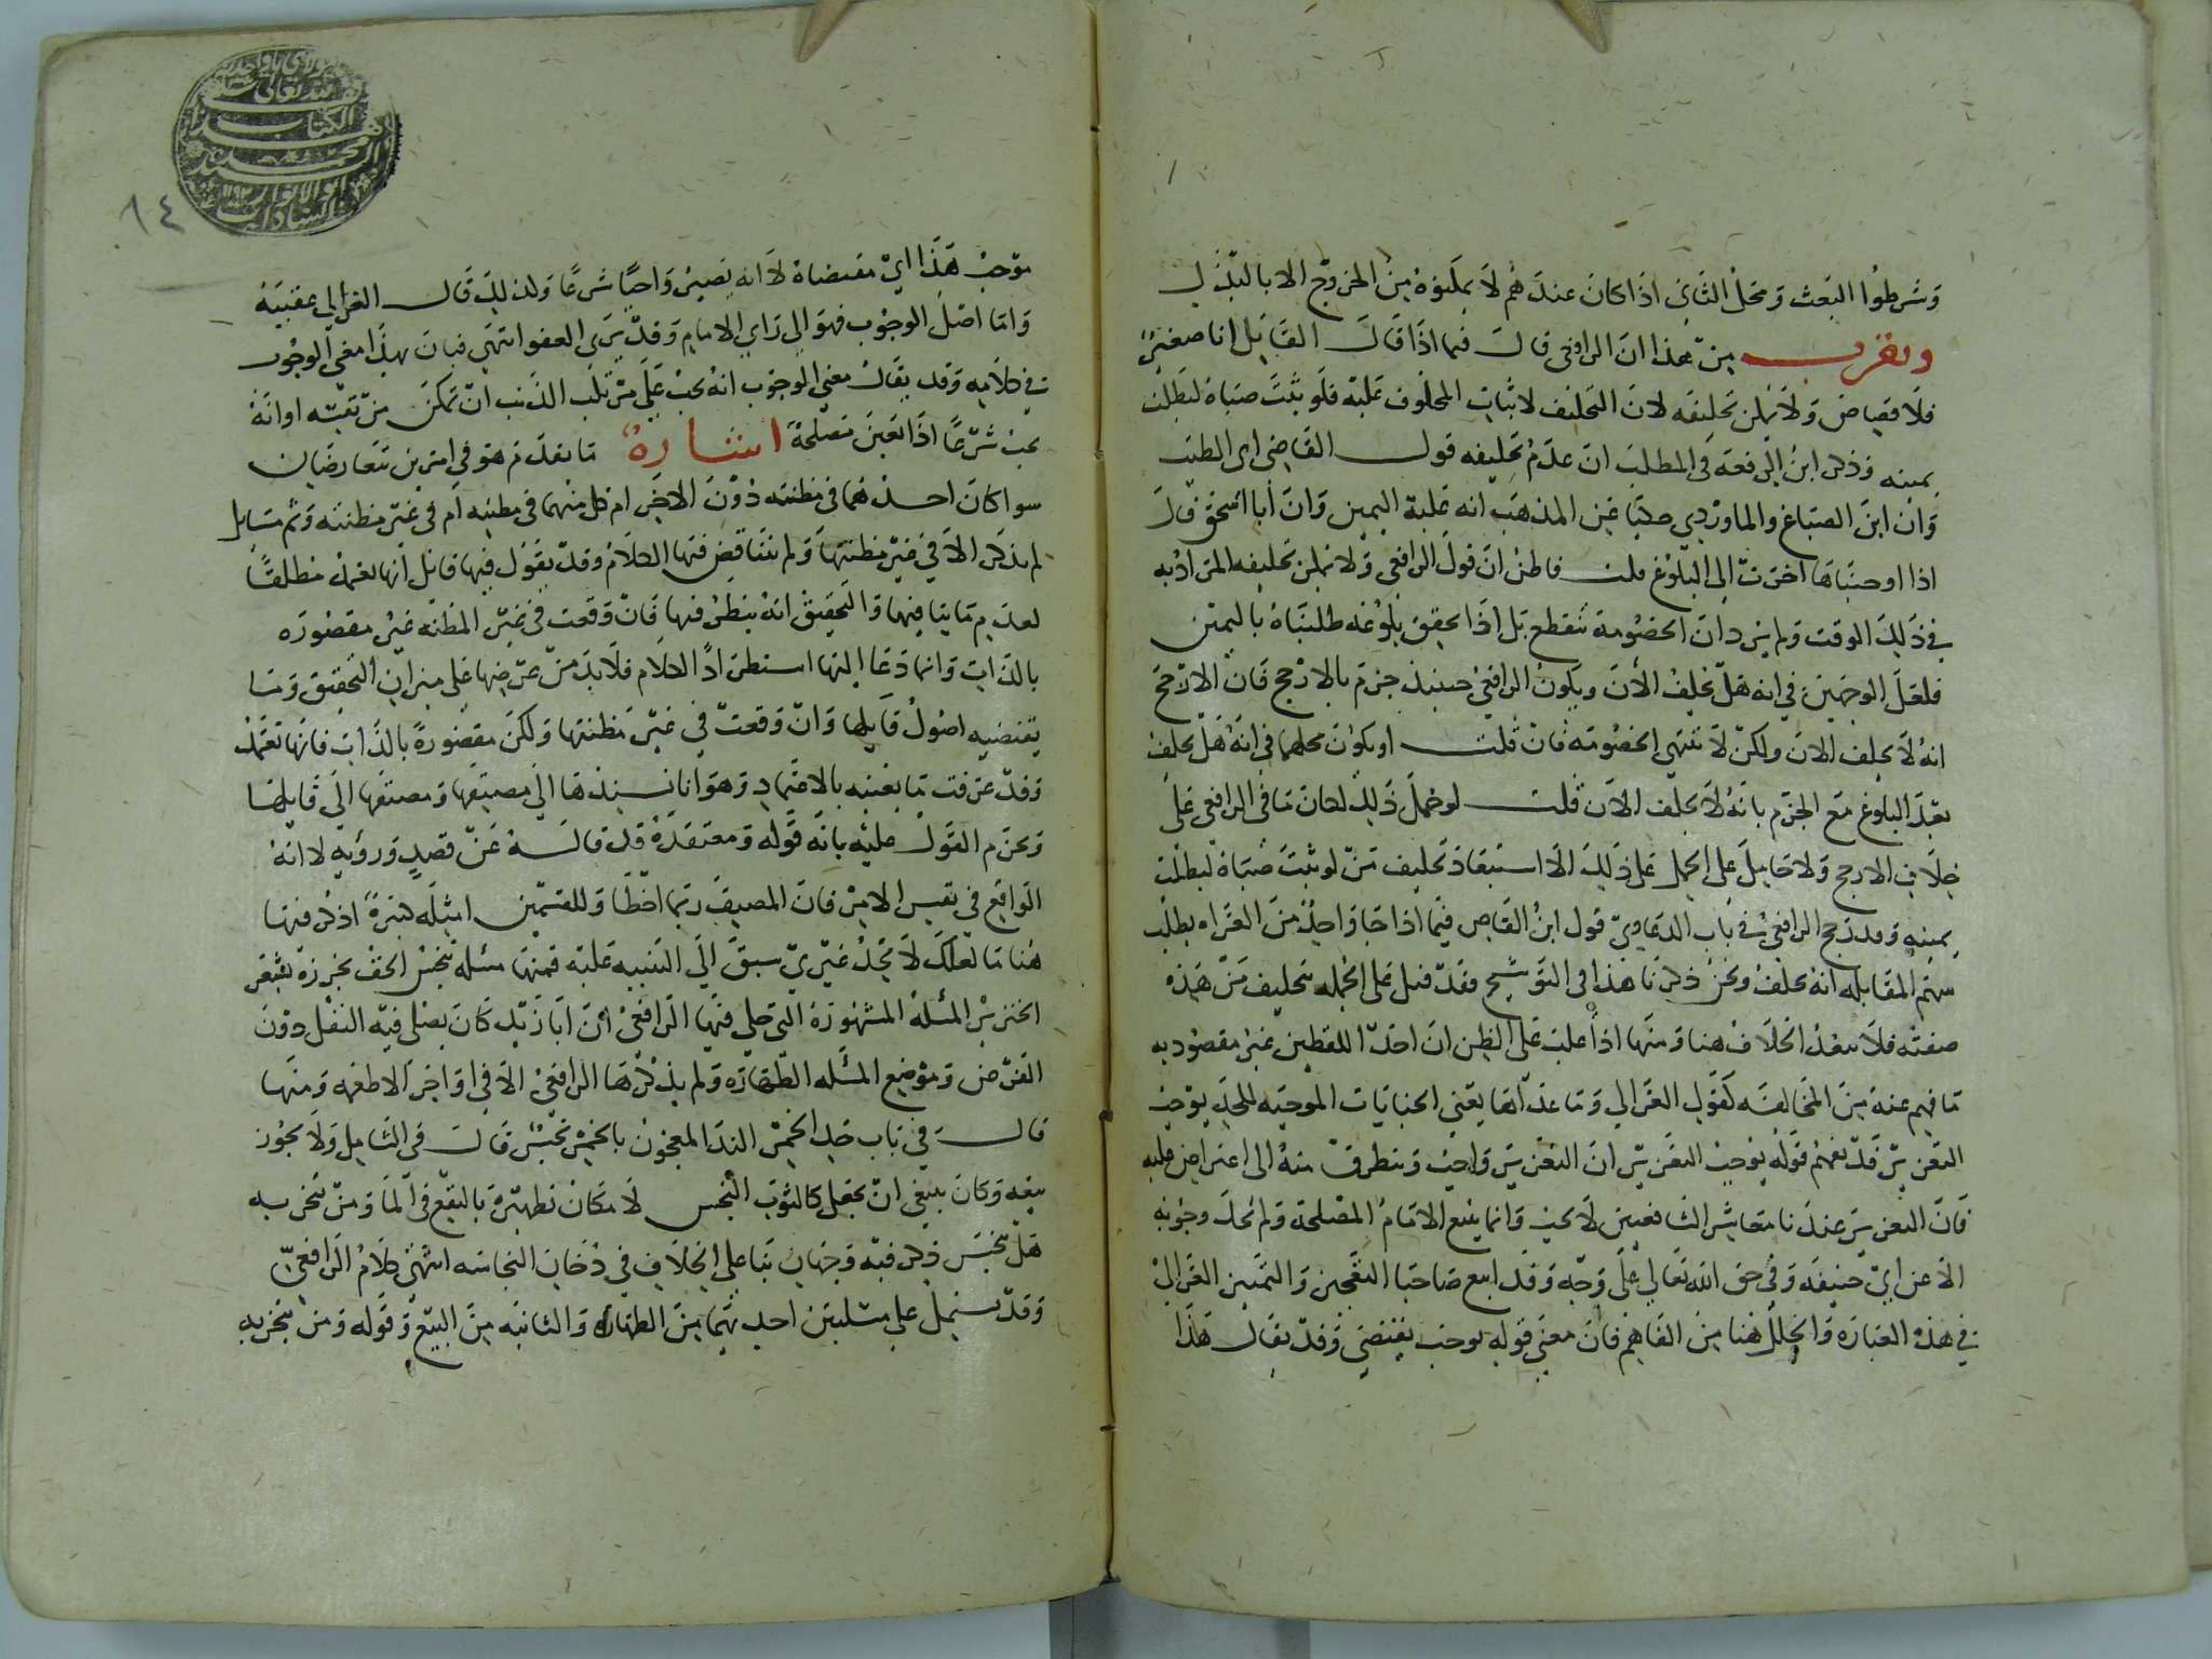 وشرطوا البعث ومحل الثاني اذا كان عندهم لا يمكنوه من الخروج الا بالبذل
ويقرب من هذا ان الرافعي قال فيما اذا قال القاتل انا صغير
فلا قصاص ولا يمكن تحليفه لان التحليف لاثبات المحلوف عليه فلو ثبت صباه لبطلت
يمينه وذكر ابن الرفعة في المطلب ان عدم تحليفه قول القاضي ابي الطيب
وان ابن الصباغ والماوردي حكيا عن المذهب انه عليه اليمين وان أبا اسحق قال
اذا اوجبناها اخرت الى البلوغ قلت فاظن ان قول الرافعي ولا يمكن تحليفه المراد به
في ذلك الوقت ولم يرد ان الخصومة تنقطع بل اذا تحقق بلوغه طلبناه باليمين
فلعل الوجهين في انه هل يحلف الآن ويكون الرافعي حينئذ جزم بالارجح فان الارجح
انه لا يحلف الان ولكن لا تنتهي الخصومة فان قلت او يكون محلهما في انه هل يحلف
بعد البلوغ مع الجزم بانه لا يحلف الآن قلت لو حمل ذلك لكان ما في الرافعي على
خلاف الارجح ولا حامل على الحمل على ذلك الا استبعاد تحليف من لو ثبت صباه لبطلت
يمينه وقد رجح الرافعي في باب الدعاوي قول ابن القاص فيما اذا جا واحد من الغزاه يطلب
سهم المقابله انه يحلف ونحن ذكرنا هذا في التوشيح فقد قيل على الجمله بتحليف من هذه
صفته فلا يبعد الخلاف هنا ومنها اذا غلب على الظن ان احد اللفظين غير مقصود به
ما فهم عنه من المخالفه كقول الغزالي وما عداها يعني الجنايات الموجبه للحد يوجب
التعزير قد يفهم قوله يوجب التعزير ان التعزير واجب ويتطرق منه الى اعتراض عليه
فان التعزير عندنا معاشر الشافعيين لا يجب وانما يتبع الامام المصلحة ولم يحك وجوبه
الا عن ابي حنيفه وفي حق الله تعالى على وجه وقد اتبع صاحبا التعجيز والتمييز الغزالي
في هذه العباره والخلل هنا من الفاهم فان معنى قوله يوجب يقتضي وقد يقال هذا
موجب هذا اي مقتضاه لا انه يصير واجبا شرعا ولذلك قال الغزالي عقيبه
واما اصل الوجوب فهو الى راي الامام وقد يرى العفو انتهى فبان بهذا معنى الوجوب
في كلامه وقد يقال معنى الوجوب انه يجب على مرتكب الذنب ان تمكن من نفسه او انه
يجب شرعا اذا تعين مصلحة اشارة ما تقدم هو في امرين متعارضان
سوا كان احدهما في مظنته دون الاخر ام كل منهما في مظنته ام في غير مظنته وثم مسايل
لم تذكر الا في غير مظنتها ولم يتناقض فيها الكلام وقد يقول فيها قائل انها يعمل مطلقا
لعدم ما ينافيها والتحقيق انه ينظر فيها فان وقعت في غير المظنه غير مقصوره
بالذات وانما دعا اليها استطراد الكلام فلا بد من عرضها على ميزان التحقيق وما
يقتضيه اصول قايلها وان وقعت في غير مظنتها ولكن مقصورة بالذات فانها تعتمد
وقد عرفت ما نعنيه بالاعتماد وهو انا نسندها الى مصنفها ومصنفها الى قايلها
ونجزم القول عليه بانه قوله ومعتقده قد قاله عن قصد ورؤيه لا انه
الواقع في نفس الامر فان المصنف ربما اخطا وللقسمين امثله كثيرة اذكر منها
هنا ما لعلك لا تجد غيري سبق الى التنبيه عليه فمنها مسئله تنجس الخف بخرزه بشعر
الخنزير المسئله المشهورة التي حكى فيها الرافعي ان ابا زيد كان يصلى فيه النفل دون
الفرض وموضع المسئله الطهاره ولم يذكرها الرافعي الا في اواخر الاطعمه ومنها
قال في باب حد الخمر الند المعجون بالخمر نجس قال في الشامل ولا يجوز
بيعه وكان ينبغي ان يجعل كالثوب النجس لا مكان تطهيره بالنقع في الما ومن تبخر به
هل تنجس ذكر فيه وجهان بنا على الخلاف في دخان النجاسه انتهى كلام الرافعي
وقد يشتمل على مسئلتين احديهما من الطهاره والثانيه من البيع وقوله ومن تبخر به
٦٤